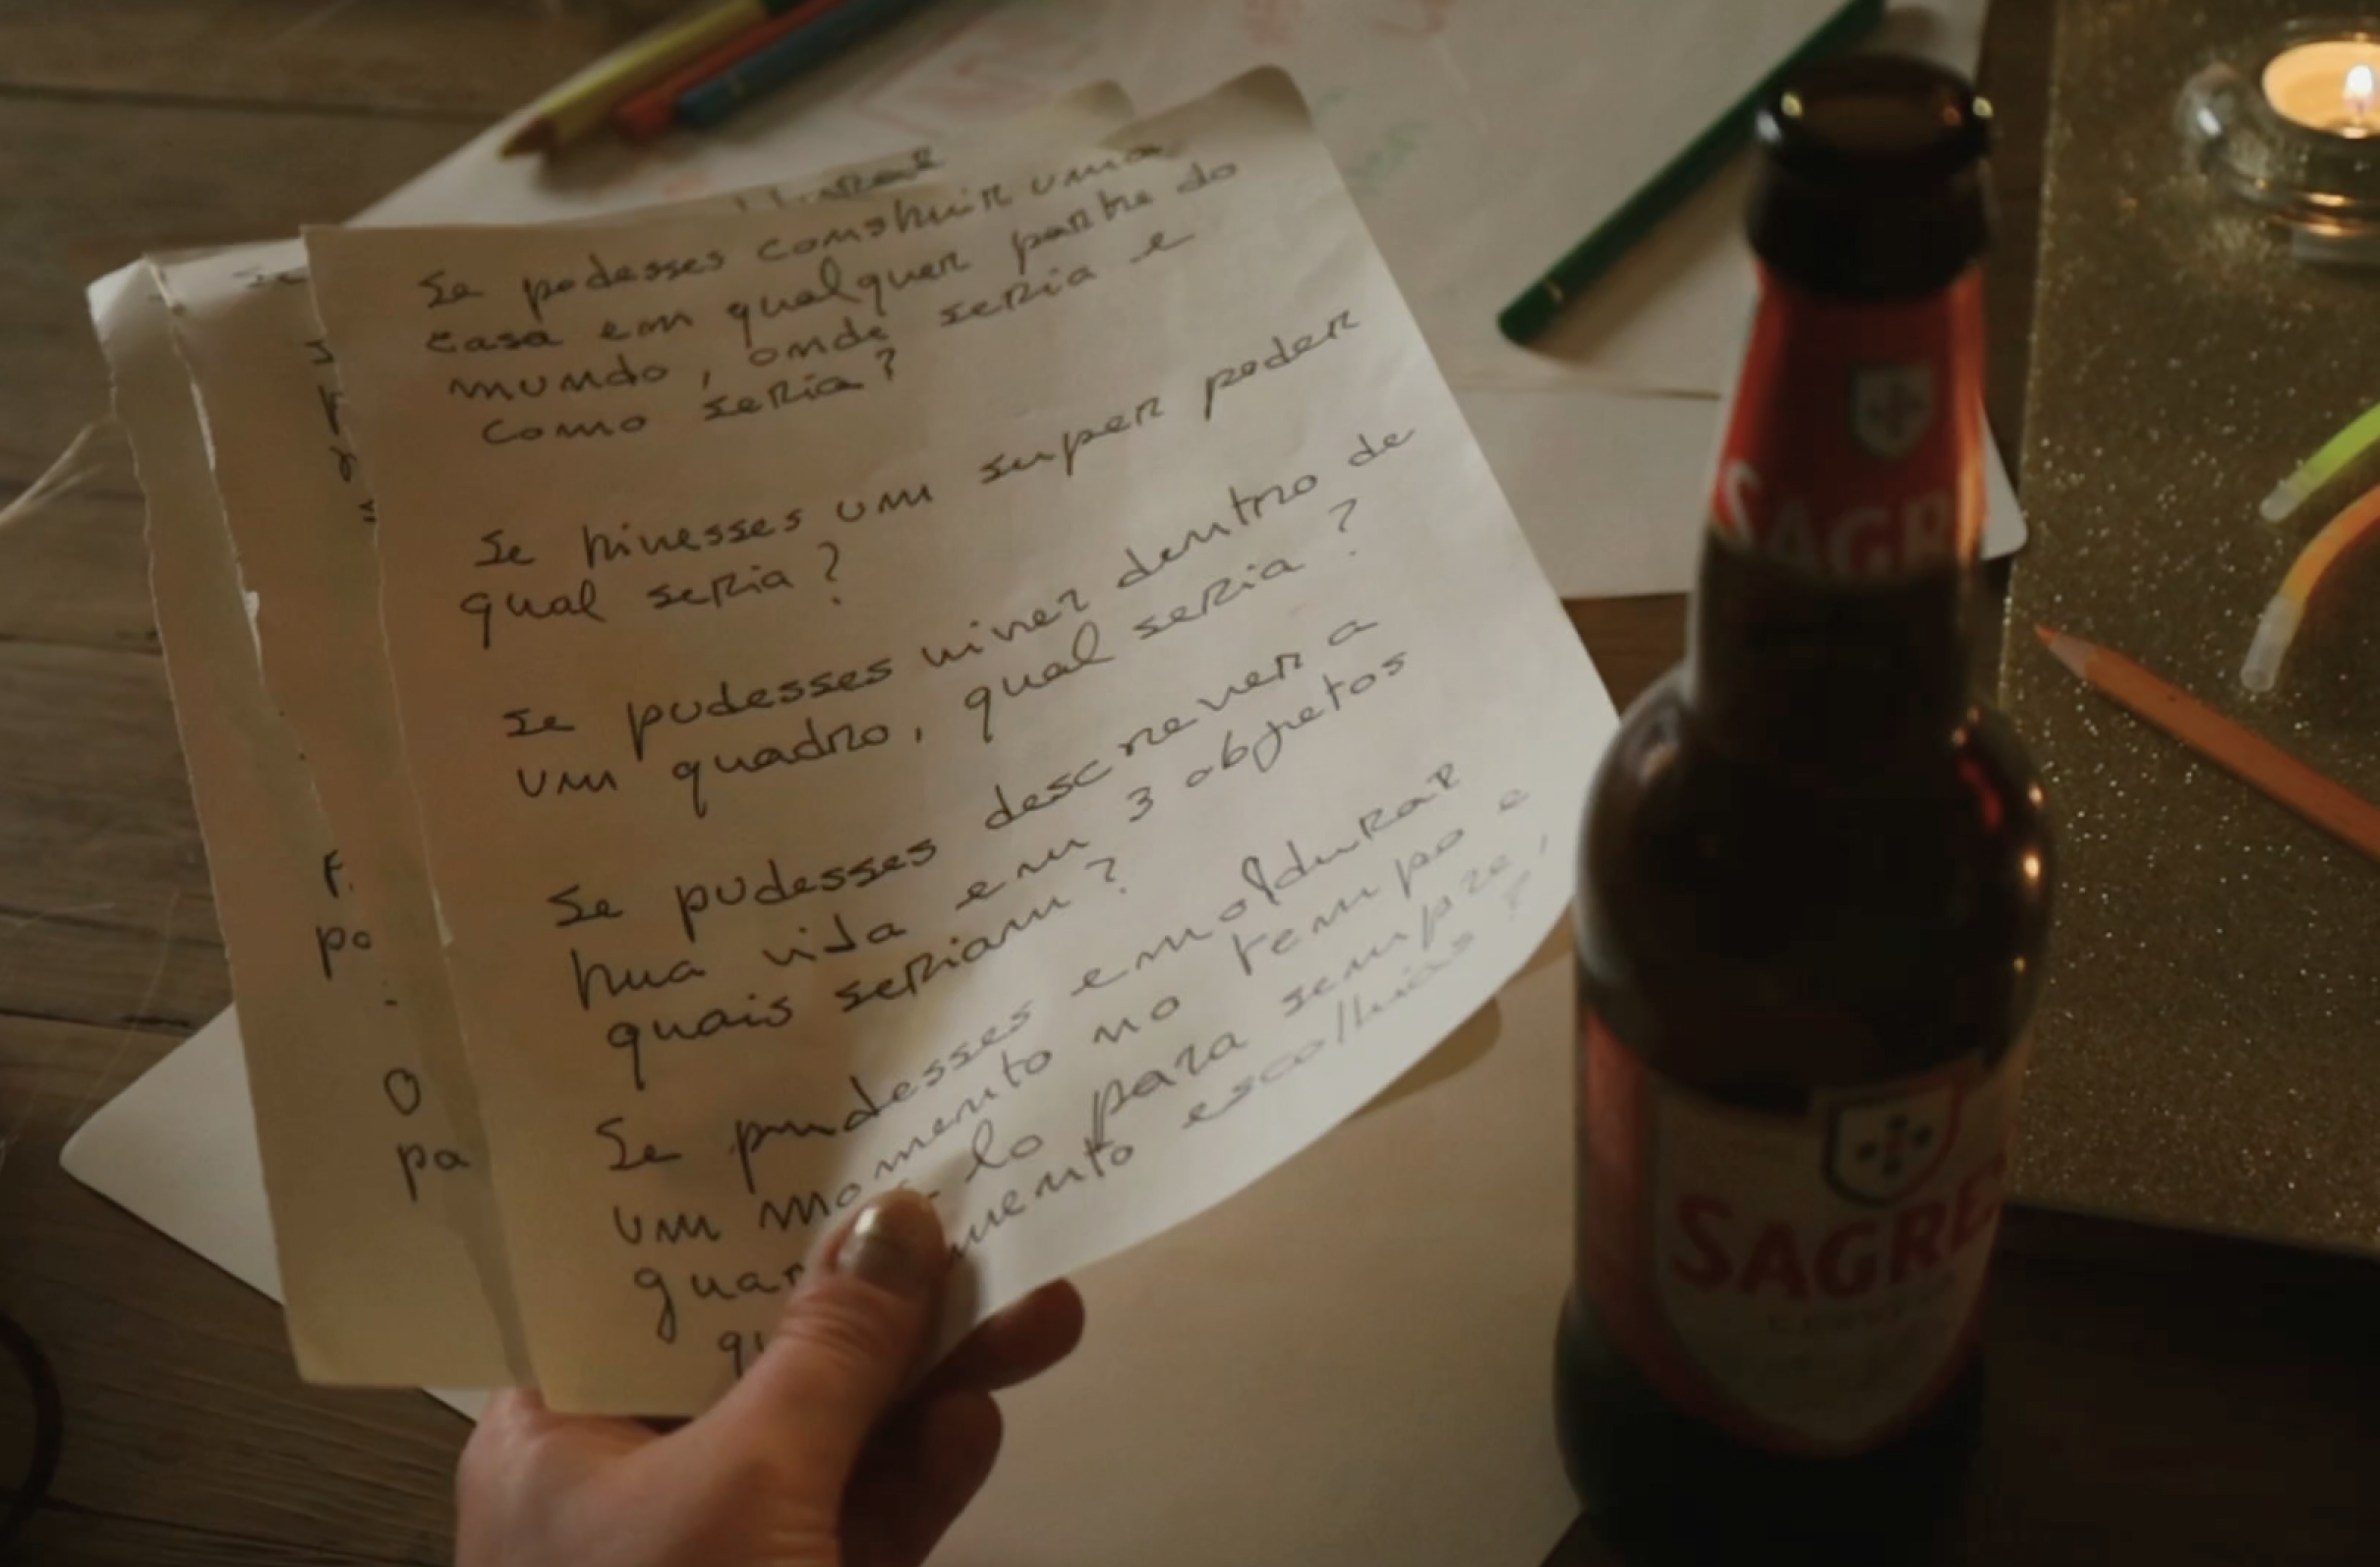 Se podesses construir uma
casa em qualquer parte do
mundo, onde seria e
como seria?
Se tivesses um super poder
qual seria?
Se pudesses viver dentro de
um quadro, qual seria?
Se pudesses descrever a
tua vida em 3 objetos
quais seriam?
Se pudesses emoldurar
um momento no tempo e
guar - lo para sempre,
qu mento escolhias?
Se
F.
po
O
pa
SAGR
SAGRE